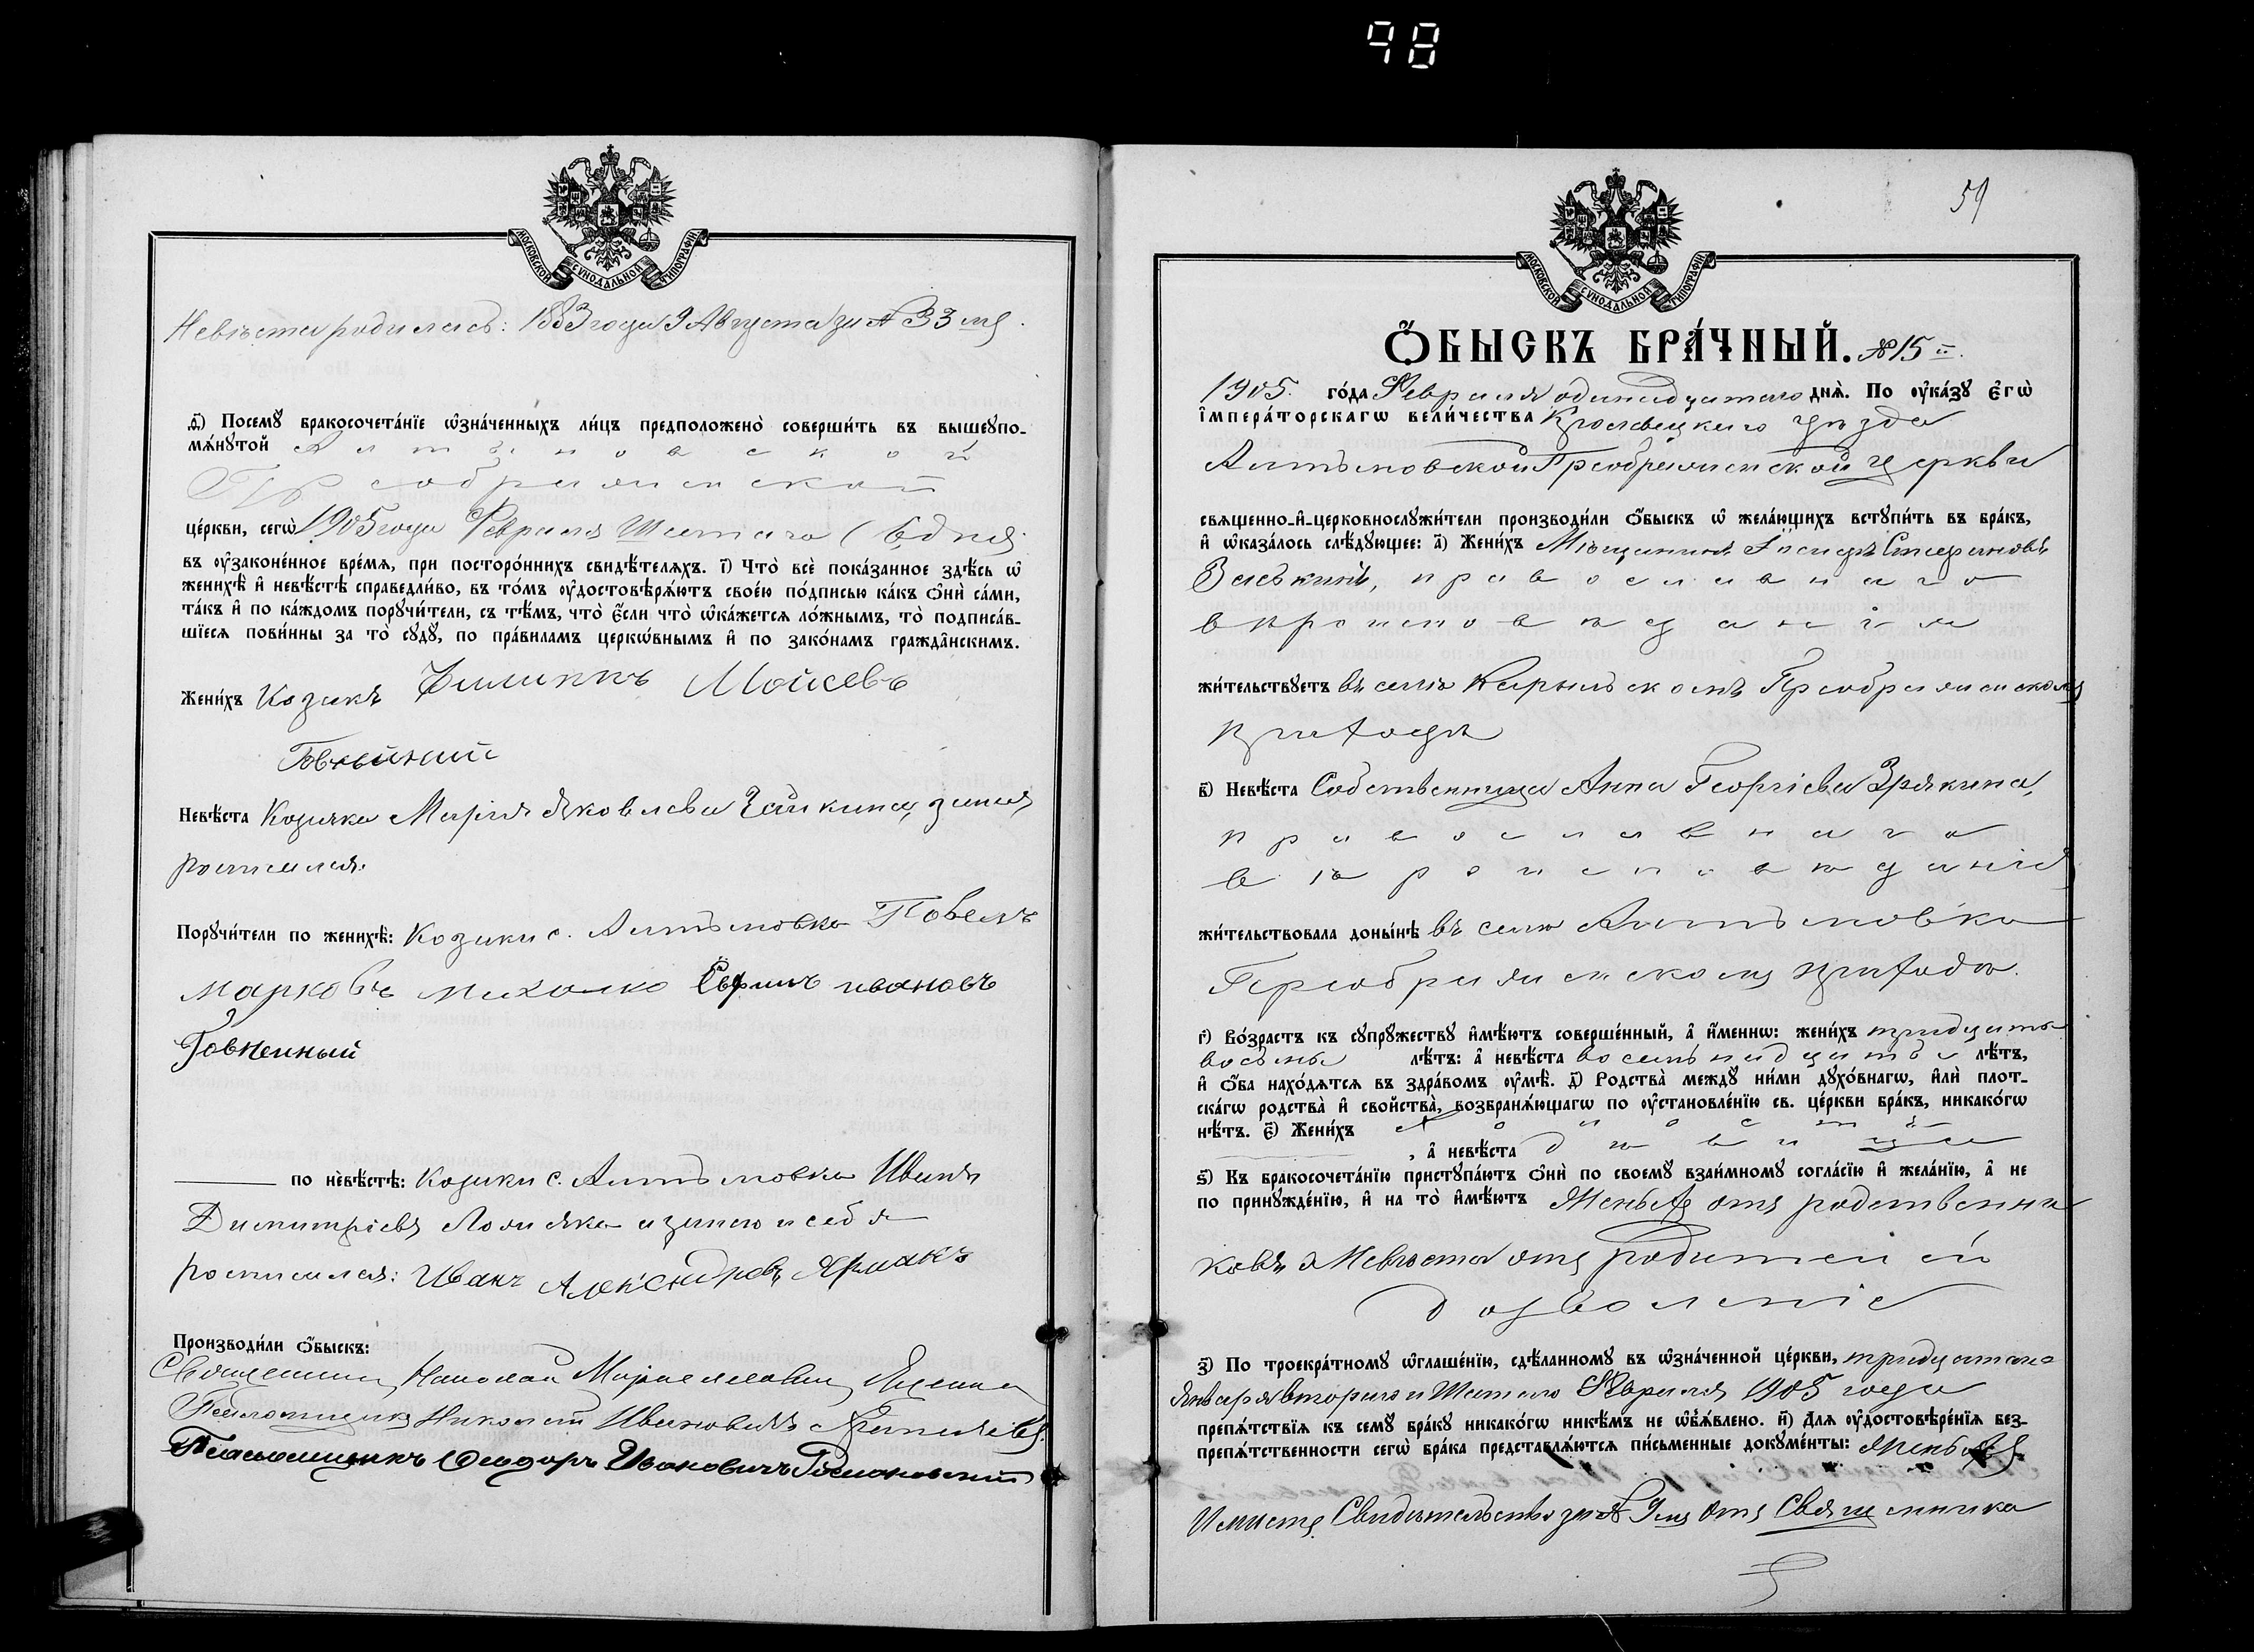 98
МОСКОВСКОЙ СѴНОДАЛЬНОЙ ТИПОГРАФІИ
Невѣста родилась: 1883 года 9 Августа за № 33 мъ.
д҃) Посемꙋ̀ бракосочета́нїе ѡ҆зна́ченныхъ ли́цъ предположено̀ соверши́ть въ вышеꙋпо-
мѧ́нꙋтой Алтыновской
Преображенской
це́ркви, сегѡ̀ 1905 года Февраля Шестаго (6) дня
въ ᲂу҆зако́ненное вре́мѧ, при посторо́ннихъ свидѣ́телѧхъ. і҃) Что̀ всѐ пока́занное здѣ́сь ѡ҆
женихѣ̀ и҆ невѣ́стѣ справедли́во, въ то́мъ ᲂу҆достовѣрѧ́ютъ свое́ю по́дписью ка́къ ѻ҆нѝ са́ми,
та́къ и҆ по ка́ждомъ порꙋчи́тели, съ тѣ́мъ, что̀ є҆́сли что̀ ѡ҆ка́жетсѧ ло́жнымъ, то̀ подписа́в-
шїесѧ пови́нны за то̀ сꙋдꙋ̀, по пра́виламъ церкѡ́внымъ и҆ по зако́намъ гражда̑нскимъ.
Жени́хъ Козакъ Филиппъ Мойсевъ
Невѣ́ста Козачка Марія Яковлева
росписался:
Порꙋчи́тели по женихѣ̀: Козаки с. Алтыновка Повелъ
Марковъ Михалко Ефимъ ивановъ
Говненный
по невѣ́стѣ: Козаки с. Алтыновка Иванъ
Димитріевъ а за нею и себя
росписался: Иванъ Александровъ Ярмакъ
Производи́ли ѻ҆́быскъ:
Священникъ Николай
Псаломщикъ Николай Ивановичъ
Псаломщикъ Феодоръ Ивановичъ
59
МОСКОВСКОЙ СѴНОДАЛЬНОЙ ТИПОГРАФІИ
Ѻ҆́БЫСКЪ БРА́ЧНЫЙ. № 15 й.
1905. го́да Февраля одинадцатаго днѧ̀. По ᲂу҆ка́зꙋ є҆гѡ̀
і҆мпера́торскагѡ вели́чества Кролевецкаго уѣзда
Алтыновской Преображенской церкви
свѧщенно-и҆-церковнослꙋжи́тели производи́ли ѻ҆́быскъ ѡ҆ жела́ющихъ встꙋпи́ть въ бра́къ,
и҆ ѡ҆каза́лось слѣ́дꙋющее: а҃) Жени́хъ Мѣщанинъ Іосифъ Стефановъ
православнаго
вѣроисповѣданія
жи́тельствꙋетъ въ селѣ Преображенскомъ
приходѣ
в҃) Невѣ́ста Собственница Анна Георгіева Зрякина,
православнаго
вѣроисповѣданія
жи́тельствовала доны́нѣ въ селѣ Алтыновка
Преображенскомъ приходѣ.
г҃) Во́зрастъ къ сꙋпрꙋ́жествꙋ и҆мѣ́ютъ соверше́нный, а҆ и҆́меннѡ: жени́хъ тридцать
восемь лѣ́тъ: а҆ невѣ́ста восемнадцать лѣ́тъ,
и҆ ѻ҆́ба нахо́дѧтсѧ въ здра́вомъ ᲂу҆мѣ̀. д҃) Родства̀ междꙋ̀ ни́ми дꙋхо́внагѡ, и҆лѝ плот-
ска́гѡ родства̀ и҆ сво́йства, возбранѧ́ющагѡ по ᲂу҆становле́нїю св. це́ркви бра́къ, никако́гѡ
нѣ́тъ. є҃) Жени́хъ холостъ
, а҆ невѣ́ста дѣвица
ѕ҃) Къ бракосочета́нїю пристꙋпа́ютъ ѻ҆нѝ по своемꙋ̀ взаи́мномꙋ согла́сїю и҆ жела́нїю, а҆ не
по принꙋжде́нїю, и҆ на то̀ и҆мѣ́ютъ Женихъ отъ родственни
ковъ а Невѣста отъ родителей
дозволеніе
з҃) По троекра́тномꙋ ѡ҆глаше́нїю, сдѣ́ланномꙋ въ ѡ҆зна́ченной це́ркви, тридцатаго
Января втораго и Шестаго Февраля 1905 года
препѧ́тствїѧ къ семꙋ̀ бра́кꙋ никако́гѡ никѣ́мъ не ѡ҆б̾ѧ́влено. и҃) Длѧ ᲂу҆достовѣре́нїѧ без-
препѧ́тственности сегѡ̀ бра́ка представлѧ́ютсѧ пи́сьменные докꙋме́нты: Женихъ
Имѣетъ Свидѣтельство за № отъ Священника